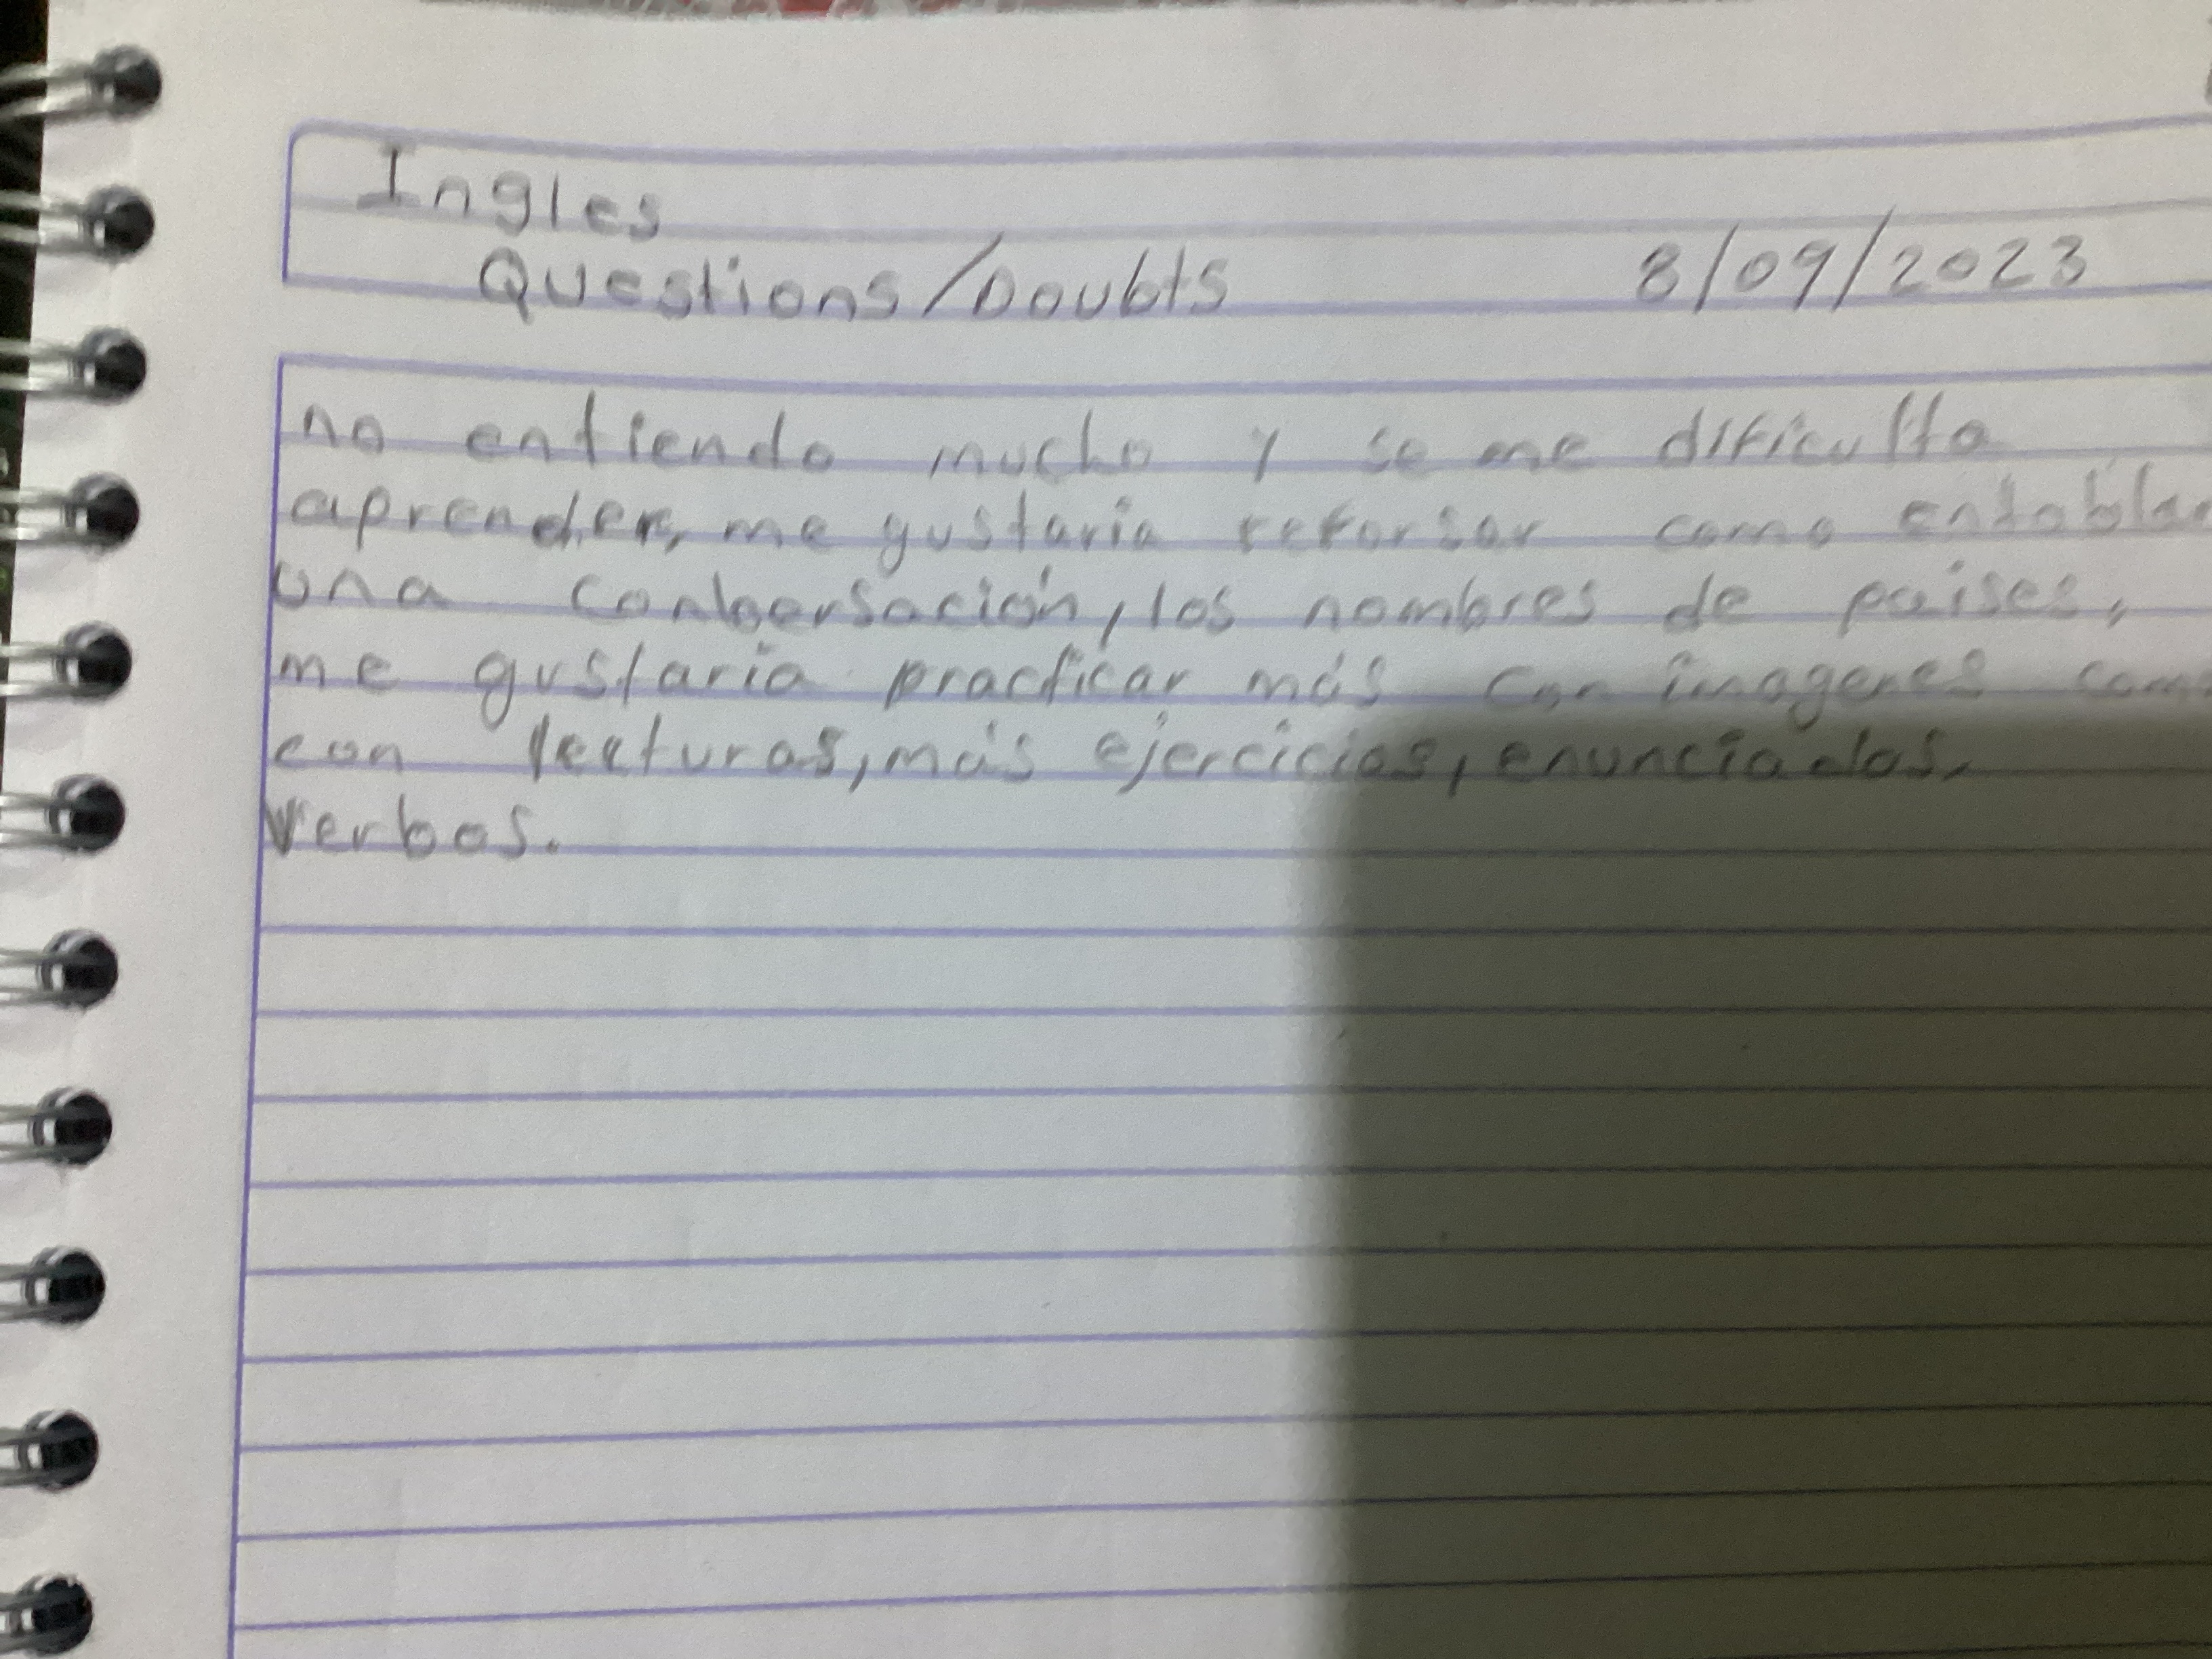 Ingles
Questions/Doubts 8/09/2023
no entiendo mucho y se me dificulta
aprender, me gustaria reforsar como entablar
una conbersación, los nombres de paises,
me gustaria practicar más con imagenes como
con lecturas, más ejercicios, enunciados,
verbos.